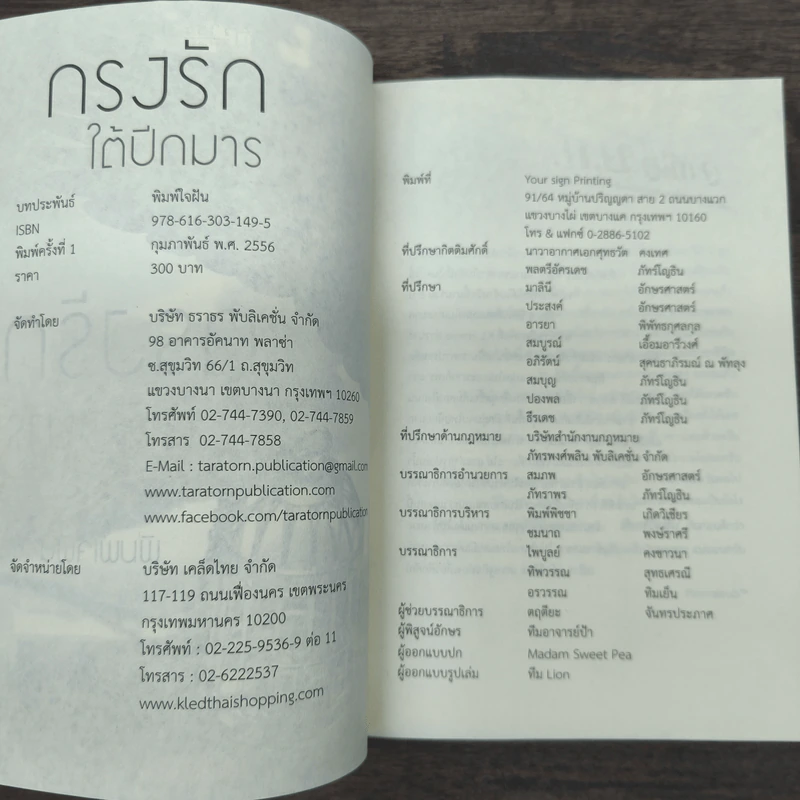 กรงรัก
ใต้ปีกมาร
บทประพันธ์ พิมพ์ใจฝัน
ISBN 978-616-303-149-5
พิมพ์ครั้งที่ 1 กุมภาพันธ์ พ.ศ. 2556
ราคา 300 บาท
จัดทำโดย บริษัท ธราธร พับลิเคชั่น จำกัด
98 อาคารอัคนาท พลาซ่า
ซ.สุขุมวิท 66/1 ถ.สุขุมวิท
แขวงบางนา เขตบางนา กรุงเทพฯ 10260
โทรศัพท์ 02-744-7390, 02-744-7859
โทรสาร 02-744-7858
E-Mail : taratorn.publication@gmail.com
www.taratornpublication.com
www.facebook.com/taratornpublication
จัดจำหน่ายโดย บริษัท เคล็ดไทย จำกัด
117-119 ถนนเฟื่องนคร เขตพระนคร
กรุงเทพมหานคร 10200
โทรศัพท์ : 02-225-9536-9 ต่อ 11
โทรสาร : 02-6222537
www.kledthaishopping.com
พิมพ์ที่ Your sign Printing
91/64 หมู่บ้านปริญญดา สาย 2 ถนนบางแวก
แขวงบางไผ่ เขตบางแค กรุงเทพฯ 10160
โทร & แฟกซ์ 0-2886-5102
ที่ปรึกษากิตติมศักดิ์ นาวาอากาศเอกศุทธวัต คงเทศ
พลตรีอัครเดช ภัทร์โญธิน
ที่ปรึกษา มาลินี อักษรศาสตร์
ประสงค์ อักษรศาสตร์
อารยา พิพัทธกุศลกุล
สมบูรณ์ เอื้อมอารีวงศ์
อภิรัตน์ สุคนธาภิรมณ์ ณ พัทลุง
สมบุญ ภัทร์โญธิน
ปองพล ภัทร์โญธิน
ธีรเดช ภัทร์โญธิน
ที่ปรึกษาด้านกฎหมาย บริษัทสำนักงานกฎหมาย
ภัทรพงศ์พลิน พับลิเคชั่น จำกัด
บรรณาธิการอำนวยการ สมภพ อักษรศาสตร์
ภัทราพร ภัทร์โญธิน
บรรณาธิการบริหาร พิมพ์พิชชา เกิดวิเชียร
ชมนาถ พงษ์ราศรี
บรรณาธิการ ไพบูลย์ คงชาวนา
ทิพวรรณ สุทธเศรณี
อรวรรณ ทิมเย็น
ผู้ช่วยบรรณาธิการ ตฤติยะ จันทรประภาศ
ผู้พิสูจน์อักษร ทีมอาจารย์ป้า
ผู้ออกแบบปก Madam Sweet Pea
ผู้ออกแบบรูปเล่ม ทีม Lion